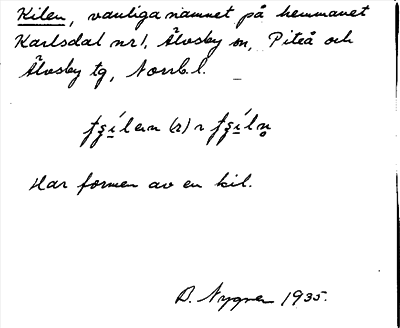 Kilen, vanliga namnet på hemmanet
Karlsdal nr 1, Älvsby sn, Piteå och
Älvsby tg, Norrb.l.
Har formen av en kil.
D. Nygren 1935.